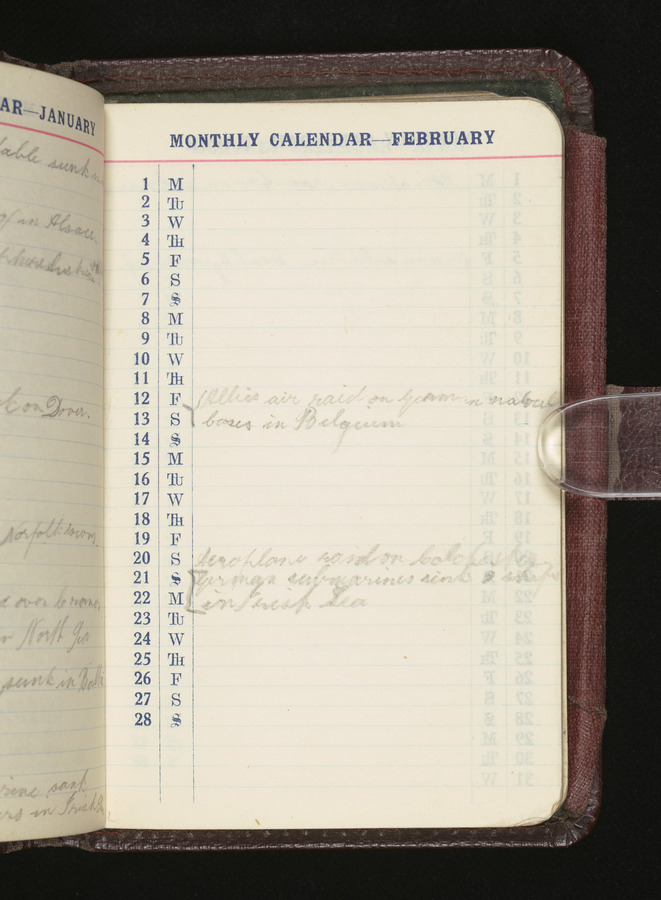 AR—JANUARY
able sunk
in Alsace
on Dover.
Norfolk
North Sea
sunk in
MONTHLY CALENDAR—FEBRUARY
1 M
2 Tu
3 W
4 Th
5 F
6 S
7 S
8 M
9 Tu
10 W
11 Th
12 F Allies air raid on German naval
13 S bases in Belgium
14 S
15 M
16 Tu
17 W
18 Th
19 F
20 S Aeroplane raid on
21 S German submarines sink 2 ships
22 M in Irish Sea
23 Tu
24 W
25 Th
26 F
27 S
28 S